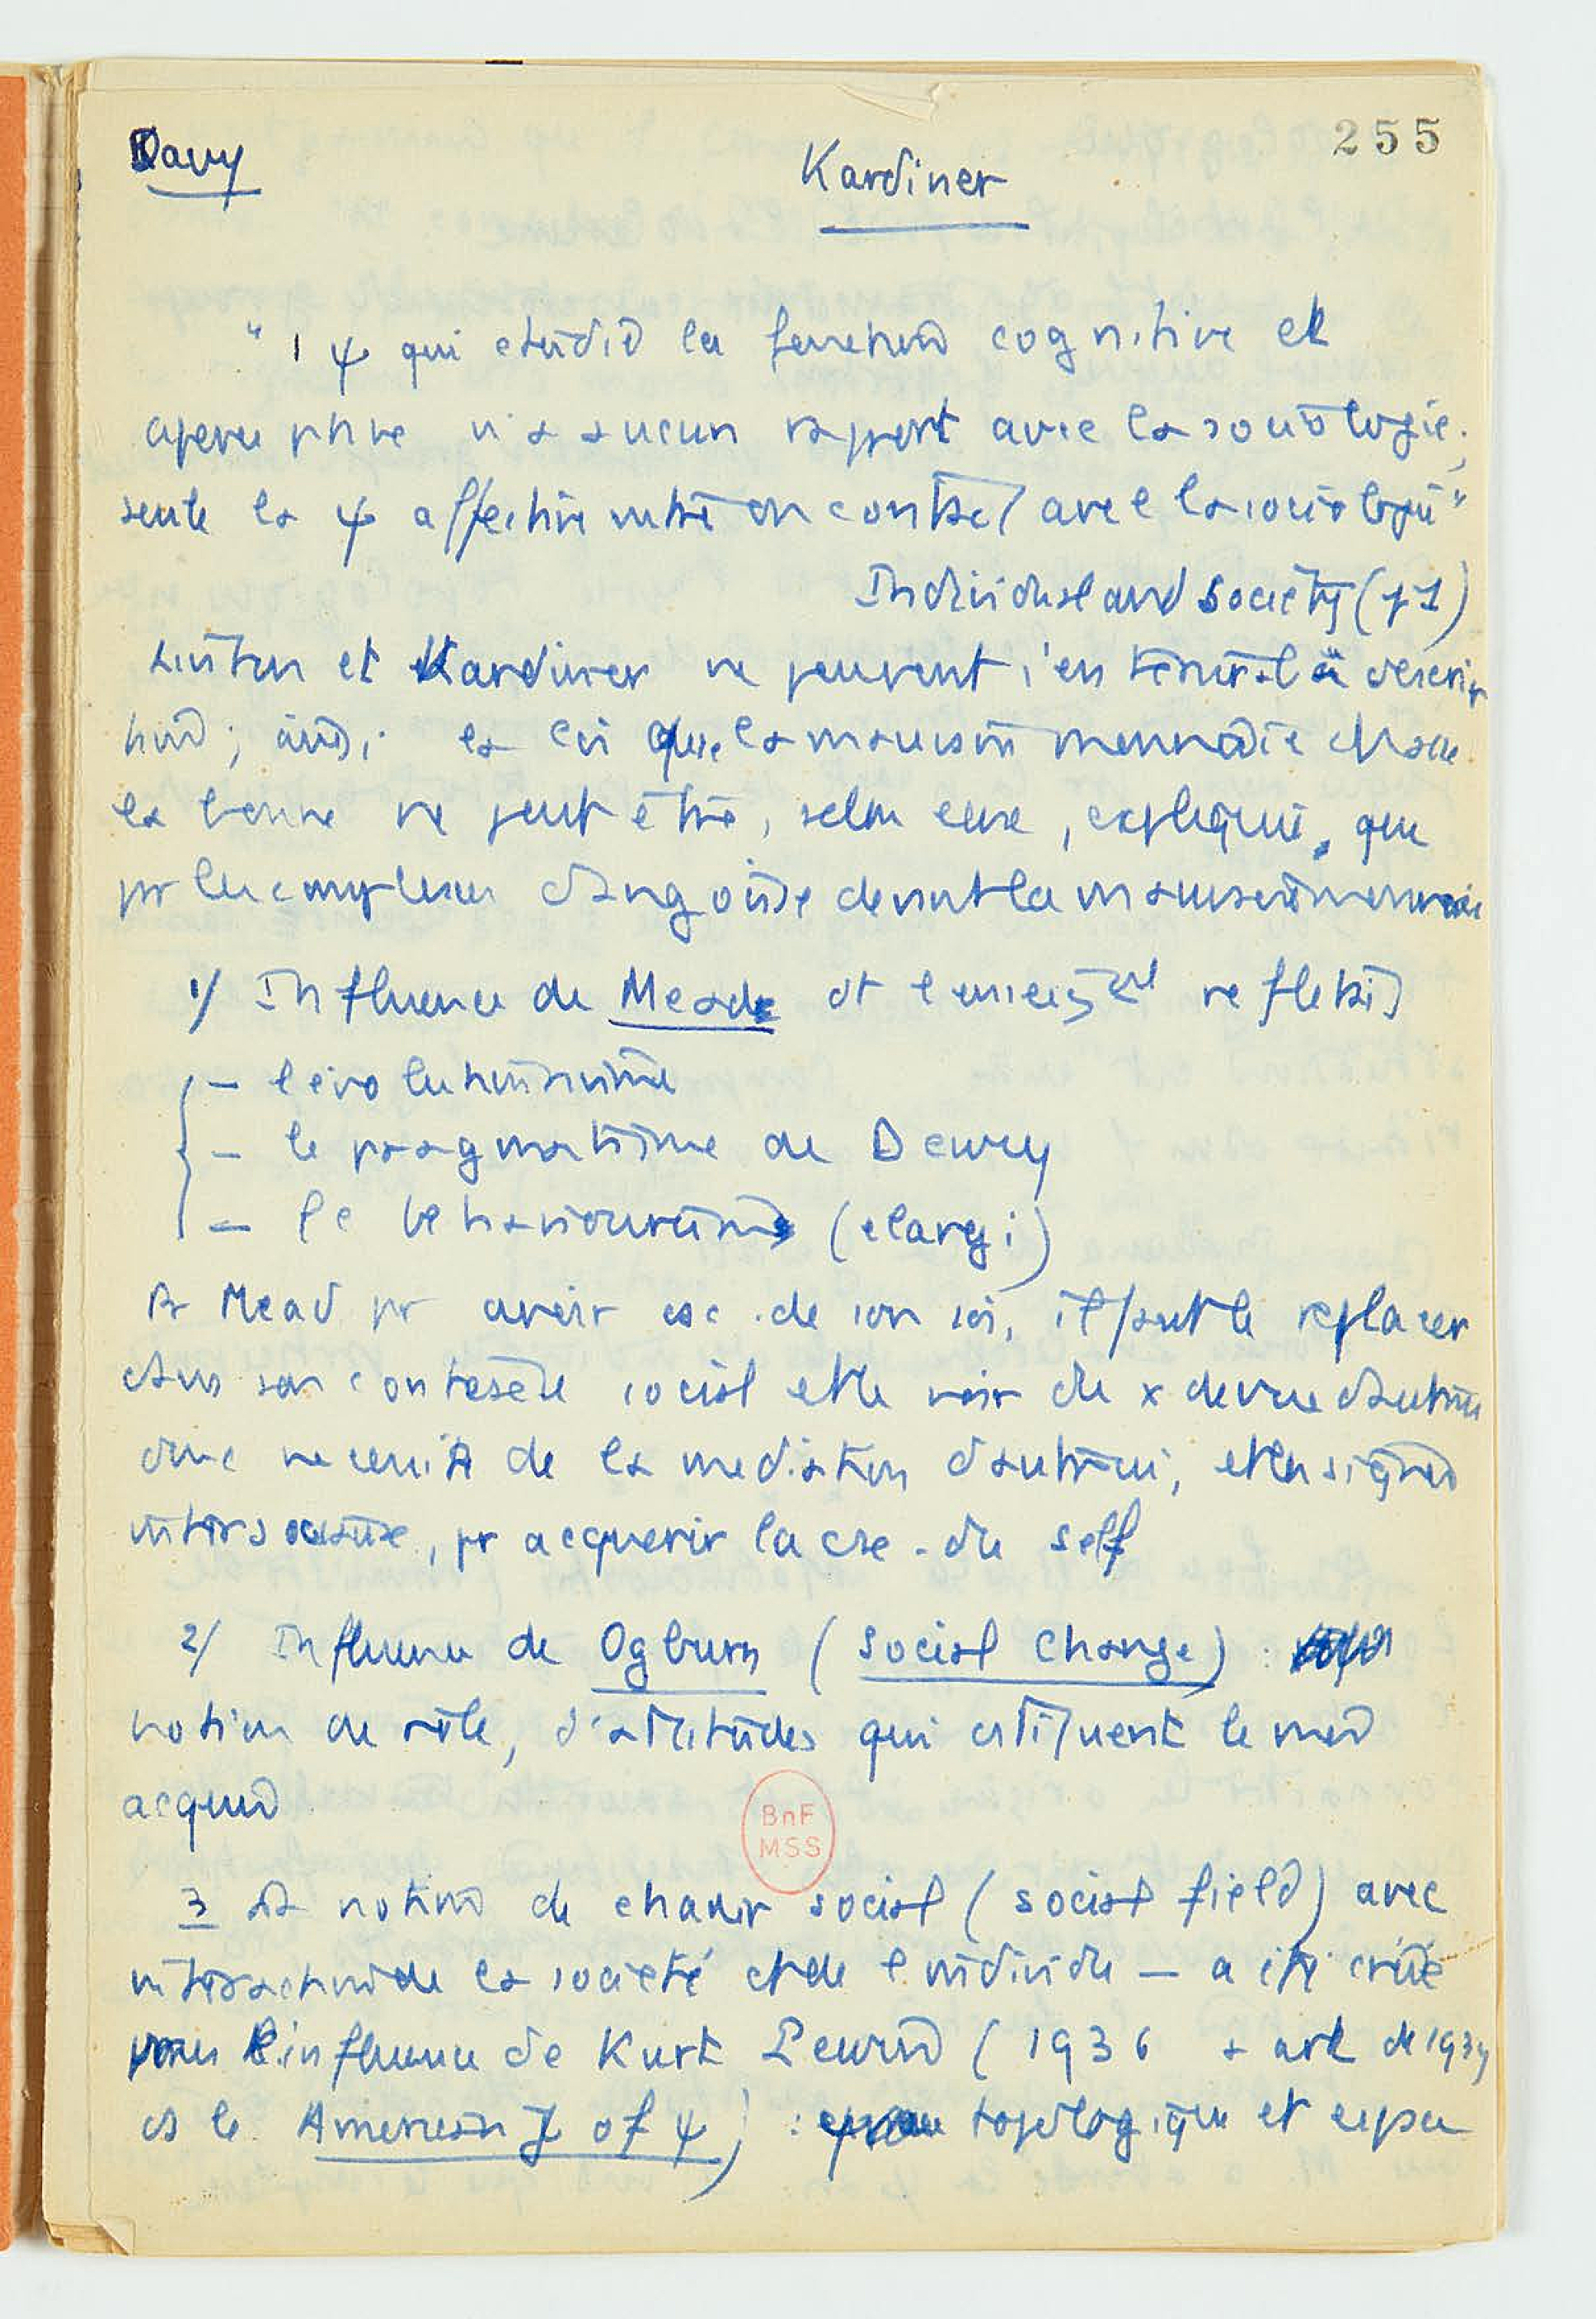 255
Davy
Kardiner
" 1 ψ qui étudie la fonction cognitive et
aperceptive n'a aucun rapport avec la sociologie ;
seule la ψ affective entre en contact avec la sociologie"
Individual and Society (p 1)
Linton et Kardiner ne peuvent s'en tenir à la descrip
tion ; ainsi la loi que la mauvaise monnaie chasse
la bonne ne peut être, selon eux, expliquée, que
pr les complexes d'angoisse devant la mauvaise monnaie
1/ Influence de Mead et l'enseigt reflétait
– l'évolutionnisme
– le pragmatisme de Dewey
– le behaviourisme (élargi)
Pr Mead pr avoir csc. de son soi, il faut le replacer
dans son contexte social et le voir du x de vue d'autrui
donc nécessité de la médiation d'autrui, et les signes
intersociaux, pr acquérir la cse. du self
2/ Influence de Ogburn (Social Change) :
notion de rôle, d'attitudes qui cstituent le moi
acquis
3 La notion de champ social (social field) avec
interaction de la société et de l'individu – a été créée
sous l'influence de Kurt Lewin (1936 & art de 1939
ds le American J of ψ) : topologique et espace